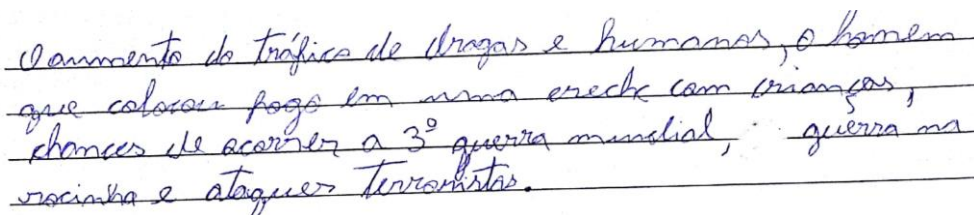 O aumento do tráfico de drogas e humanos, o homem
que colocou fogo em uma creche com crianças,
chances de ocorrer a 3º guerra mundial, guerra na
rocinha e ataques terroristas.